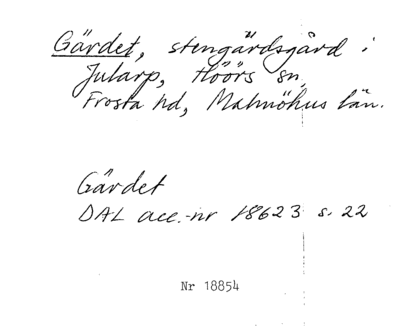 Gärdet, stengärdsgård i
Jularp, Höörs sn,
Frosta hd, Malmöhus län.
Gärdet
DAL acc.-nr 18623 s. 22
Nr 18854